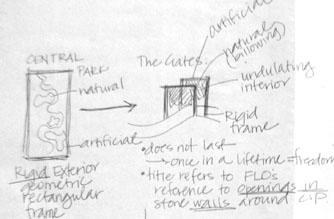 artificial
CENTRAL
PARK
The Gates:
natural
(billowing)
natural
undulating
interior
artificial
Rigid
frame
Rigid Exterior
geometric
rectangular
frame
• does not last
→ once in a lifetime = freedom
• title refers to FLO's
reference to openings in
stone walls around C.P.